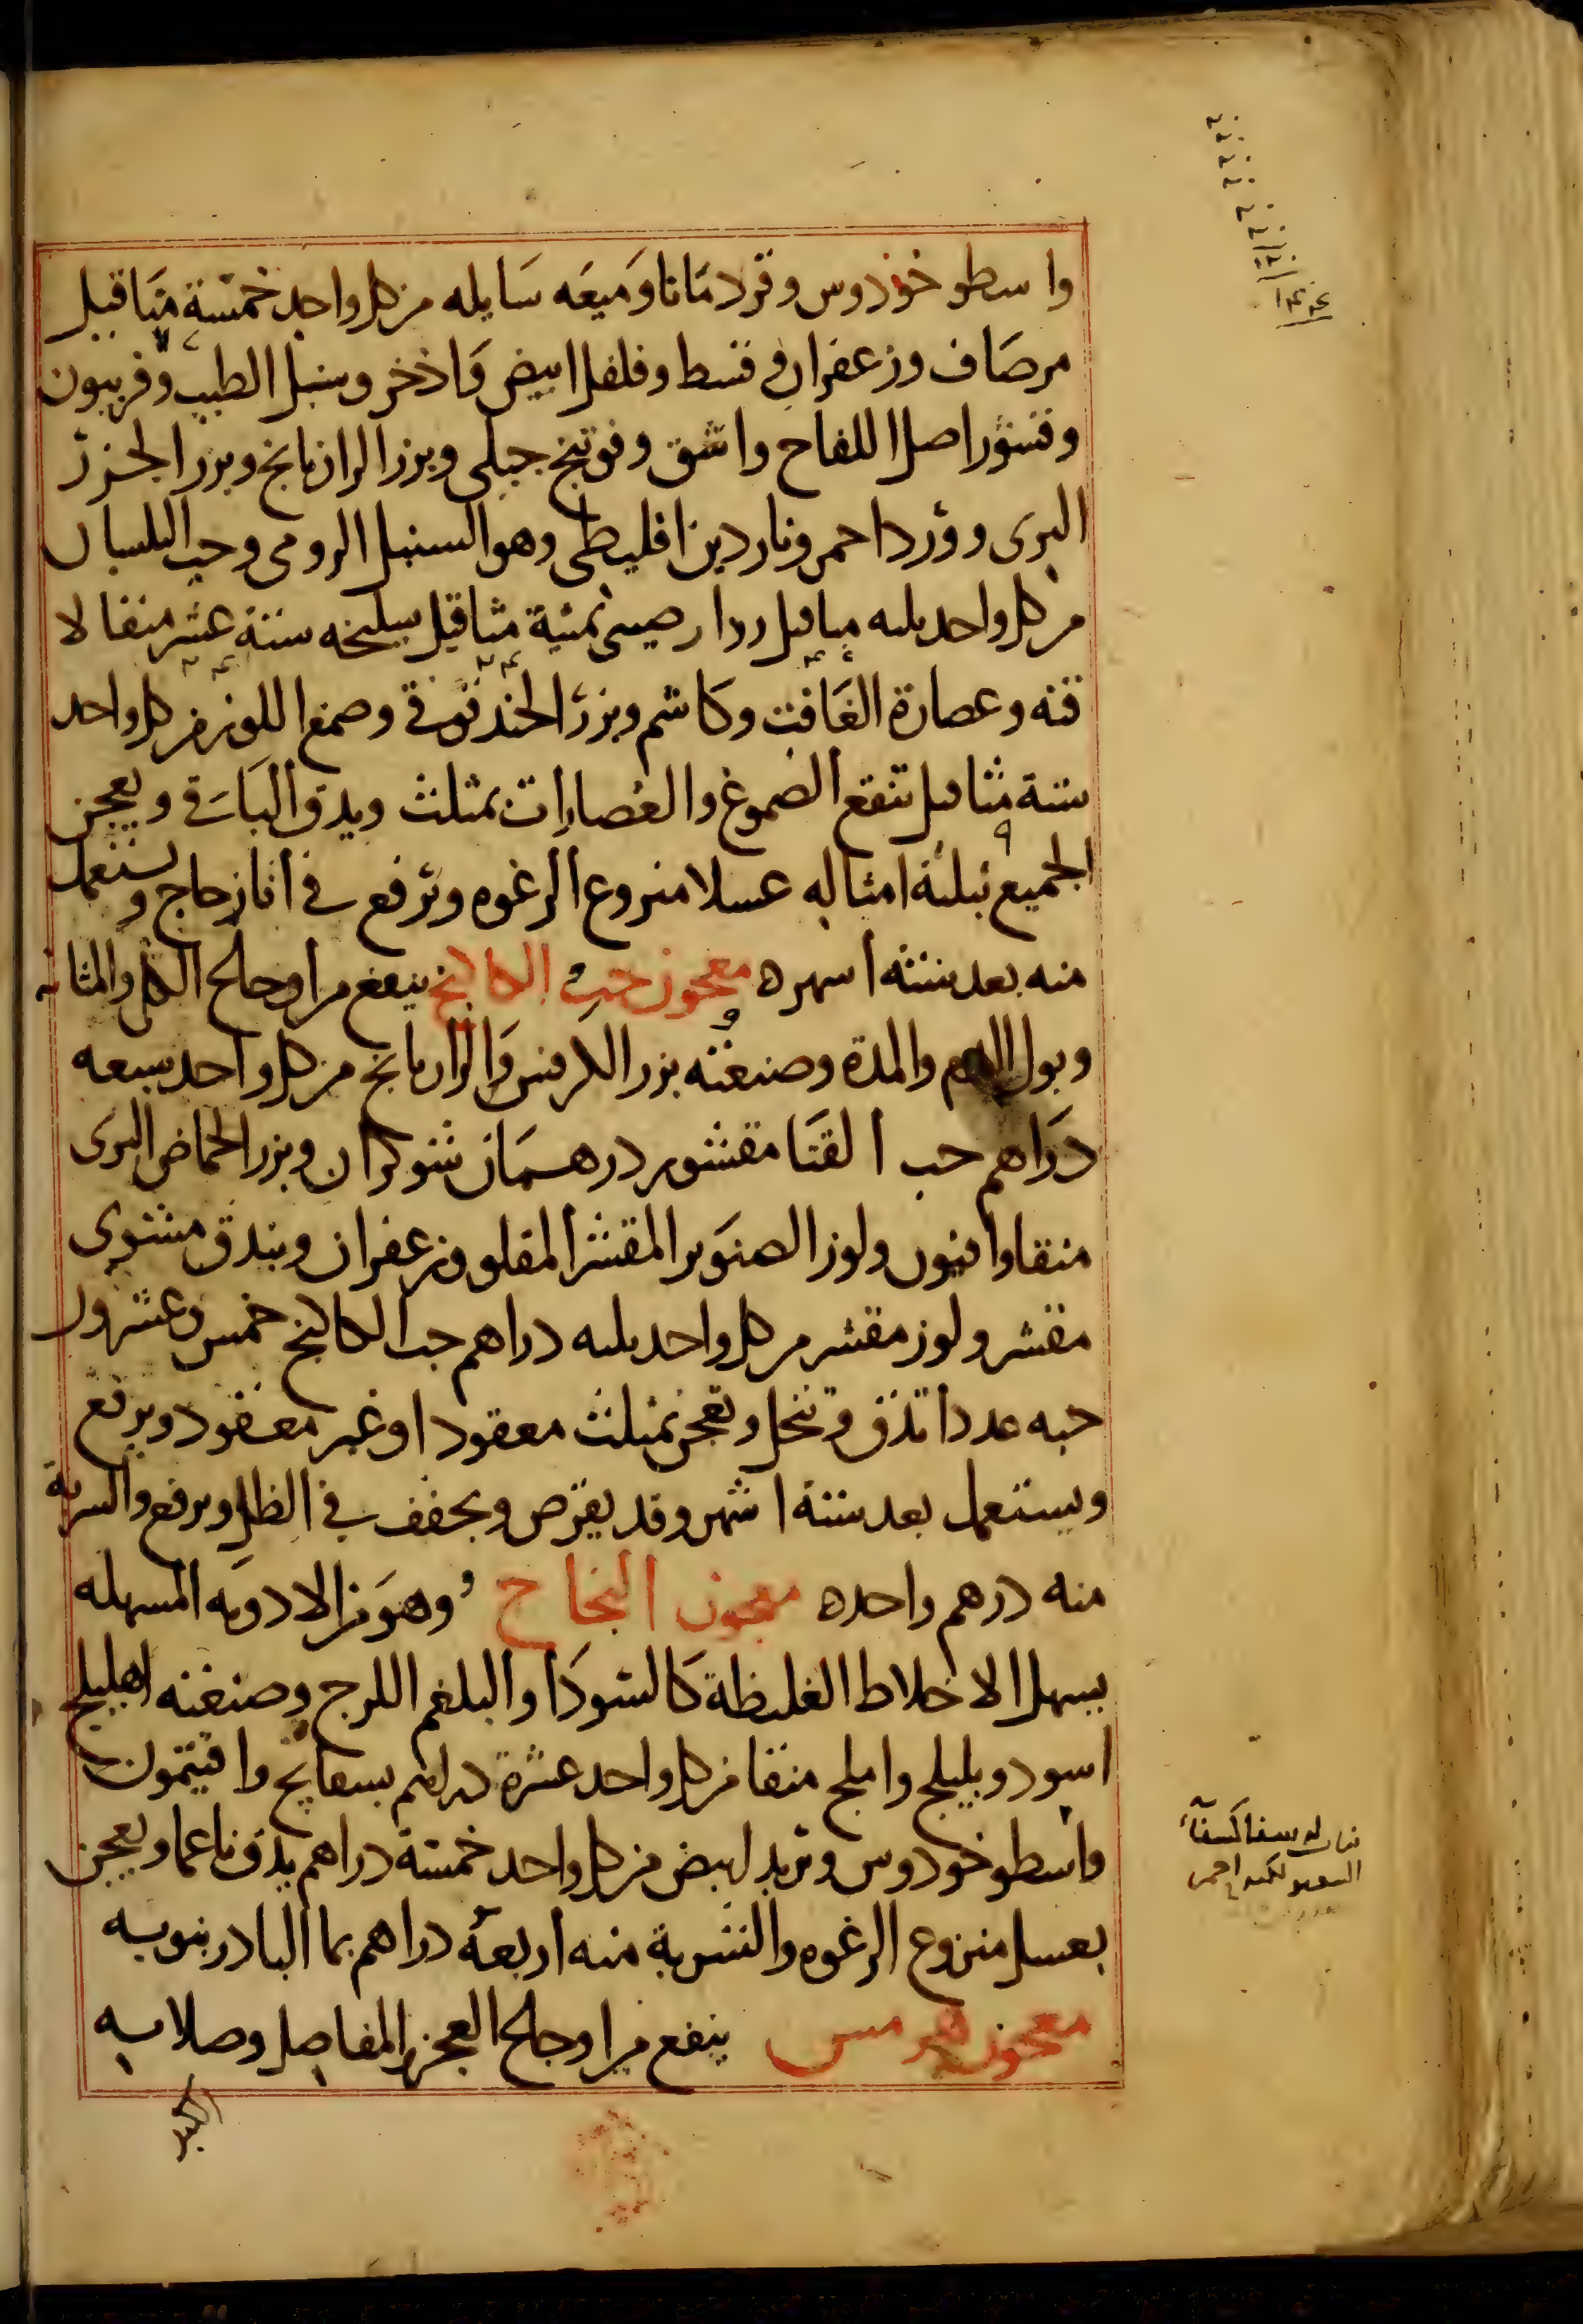 واسطوخوذوس وقردمانا وميعه سايله من كل واحد خمسة مثاقيل
مر صاف وزعفران وقسط وفلفل ابيض واذخر وسنبل الطيب وفربيون
وقشور اصل اللفاح واشق وفوتنج جبلى وبزر الرازيانج وبزر الجزر
البرى وورد احمر وناردين اقليطى وهو السنبل الرومى وحب البلسان
من كل واحد ثلثه مثاقيل دار صينى ثمنية مثاقيل سليخه ستة عشر مثقالا
قنه وعصارة الغافت وكاشم وبزر الحندقوقى وصمغ اللوز من كل واحد
ستة مثاقيل تنقع الصموغ والعصارات بمثلث ويدق الباقى ويعجن
الجميع بثلثة امثاله عسلا منزوع الرغوه وترفع فى انا زجاج ويستعمل
منه بعد ستة اشهره معجون حب الكاكنج ينفع من اوجاع الكلى والمثانه
وبول الدم والمدة وصنعته بزر الكرفس والرازيانج من كل واحد سبعه
دراهم حب القثا مقشور درهمان شوكران وبزر الحماض البرى
منقا وافيون ولوز الصنوبر المقشر المقلو وزعفران وبندق مشوى
مقشر ولوز مقشر من كل واحد ثلثه دراهم حب الكاكنج خمس وعشرون
حبه عددا تدق وتنخل وتعجن بمثلث معقود او غير معقود ويرفع
ويستعمل بعد ستة اشهر وقد يقرص ويجفف فى الظل ويرفع والشربة
منه درهم واحده معجون النجاح وهو من الادويه المسهله
يسهل الاخلاط الغليظة كالسودا والبلغم اللزج وصنعته اهليلج
اسود وبليلج واملج منقا من كل واحد عشرة دراهم بسفايج وافيتمون
واسطوخودوس وتربد ابيض من كل واحد خمسة دراهم يدق ناعما ويعجن
بعسل منزوع الرغوه والشربة منه اربعة دراهم بما البادرنبويه
معجون هرمس ينفع من اوجاع العجز والمفاصل وصلابه
الكبد